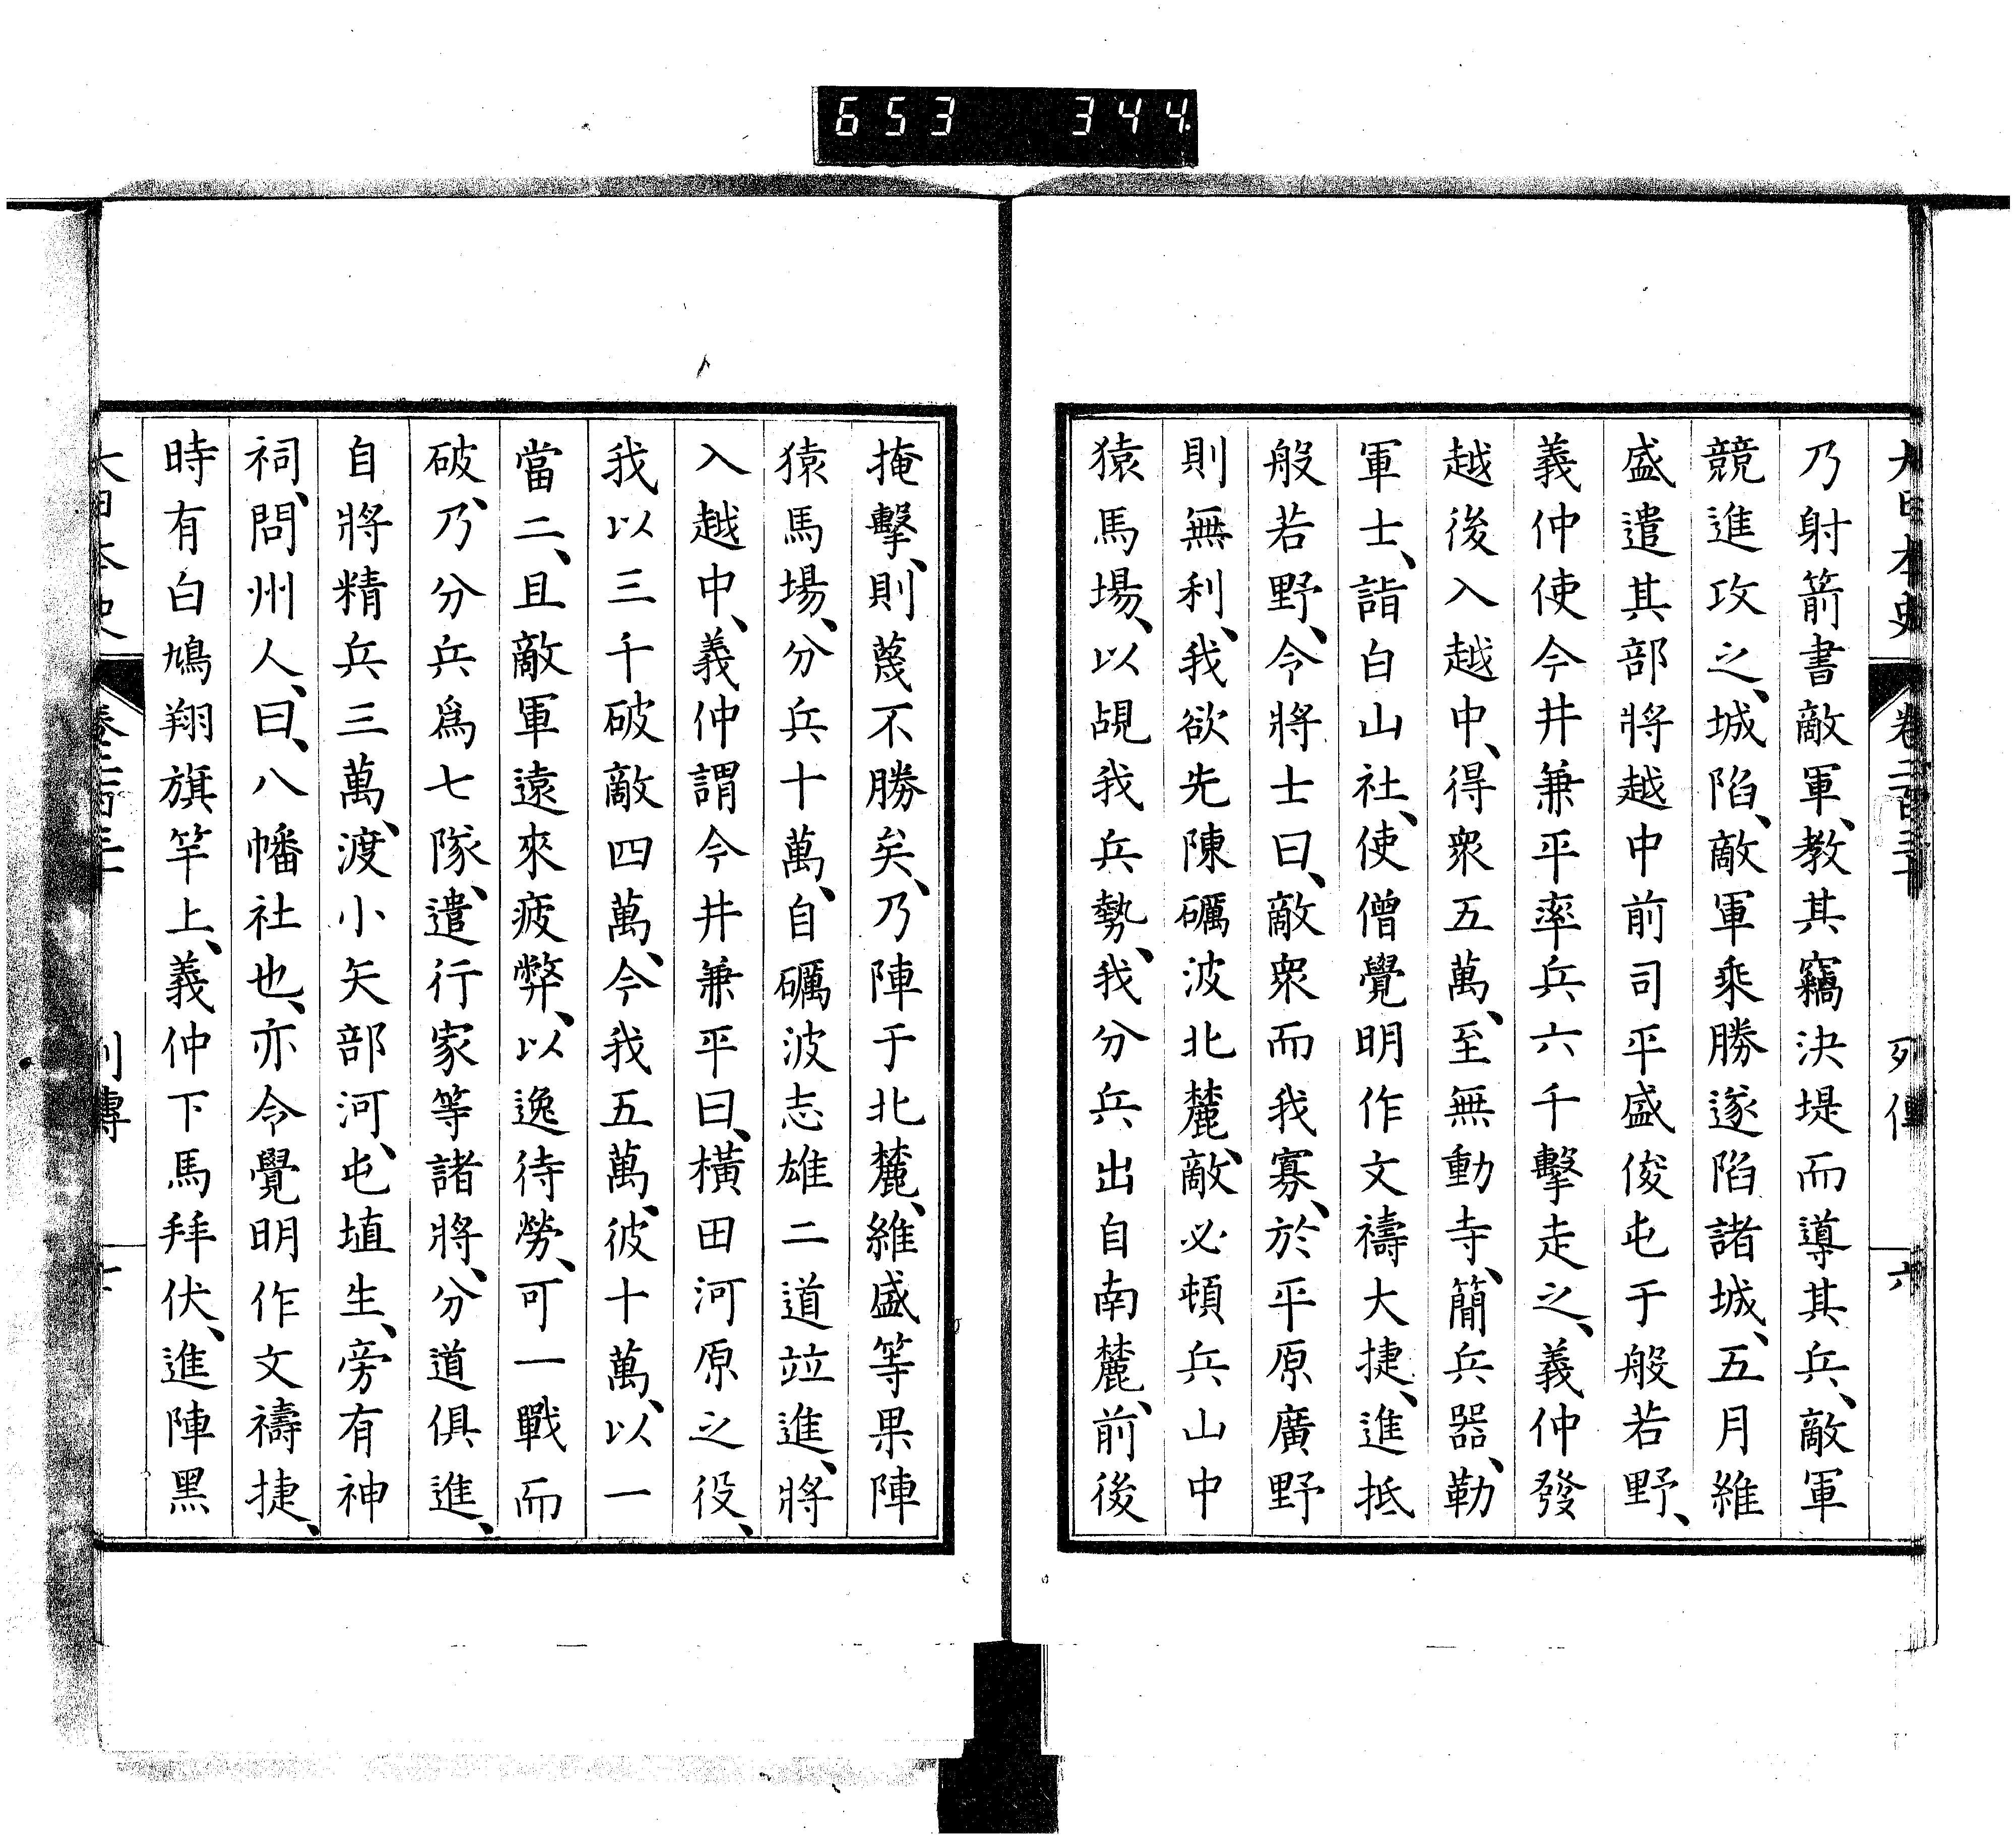 653 344
大日本史 卷二百三十 列傳 六
乃射箭書敵軍、教其竊決堤而導其兵、敵軍
競進攻之、城陷、敵軍乘勝遂陷諸城、五月維
盛遣其部將越中前司平盛俊屯于般若野、
義仲使今井兼平率兵六千擊走之、義仲發
越後入越中、得衆五萬、至無動寺、簡兵器、勒
軍士、詣白山社、使僧覺明作文禱大捷、進抵
般若野、令將士曰、敵衆而我寡、於平原廣野
則無利、我欲先陳礪波北麓、敵必頓兵山中
猿馬場、以覘我兵勢、我分兵出自南麓、前後
掩擊、則蔑不勝矣、乃陣于北麓、維盛等果陣
猿馬場、分兵十萬、自礪波志雄二道竝進、將
入越中、義仲謂今井兼平曰、橫田河原之役、
我以三千破敵四萬、今我五萬、彼十萬、以一
當二、且敵軍遠來疲弊、以逸待勞、可一戰而
破、乃分兵爲七隊、遣行家等諸將、分道俱進、
自將精兵三萬、渡小矢部河、屯埴生、旁有神
祠、問州人、曰、八幡社也、亦令覺明作文禱捷、
時有白鳩翔旗竿上、義仲下馬拜伏、進陣黑
大日本史 列傳